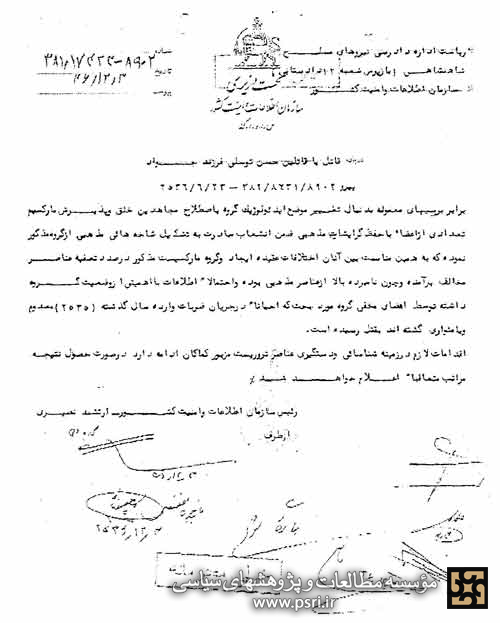 ریاست اداره دادرسی نیروهای مسلح
شاهنشاهی (بازپرس شعبه ۱۲ دادستانی)
سازمان اطلاعات وامنیت کشور
نخست وزیری
سازمان اطلاعات و امنیت کشور
س.ا.و.ا.ک
شماره
تاریخ
پیوست
درباره قاتل یا قاتلین حسن توسلی فرزند جواد
پیرو ۳۸۲/۸۶۳۱/۸۹۰۲ — ۲۵۳۶/۶/۲۳
برابر بررسیهای معموله بدنبال تغییر موضع ایدئولوژیک گروه باصطلاح مجاهدین خلق وپذیرش مارکسیسم
تعدادی ازاعضاء باحفظ گرایشات مذهبی ضمن انشعاب مبادرت به تشکیل شاخه هائی مذهبی ازگروه مذکور
نموده که به همین مناسبت بین آنان اختلافات عقیده ایجاد وگروه مارکسیست مذکور درصدد تصفیه عناصر
مخالف برآمده وچون نامبرده بالا ازعناصر مذهبی بوده واحتمالا" اطلاعات بااهمیتی ازوضعیت گروه
داشته توسط اعضای مخفی گروه مورد بحث که احیانا" درجریان ضربات وارده سال گذشته (۲۵۳۵) معدوم
ویامتواری گشته اند بقتل رسیده است.
اقدامات لازم درزمینه شناسائی ودستگیری عناصر تروریست مزبور کماکان ادامه دارد درصورت حصول نتیجه
مراتب متعاقبا" اعلام خواهد شد
رئیس سازمان اطلاعات وامنیت کشور. ارتشبد نصیری
ازطرف
مؤسسه مطالعات و پژوهشهای سیاسی
www.psri.ir